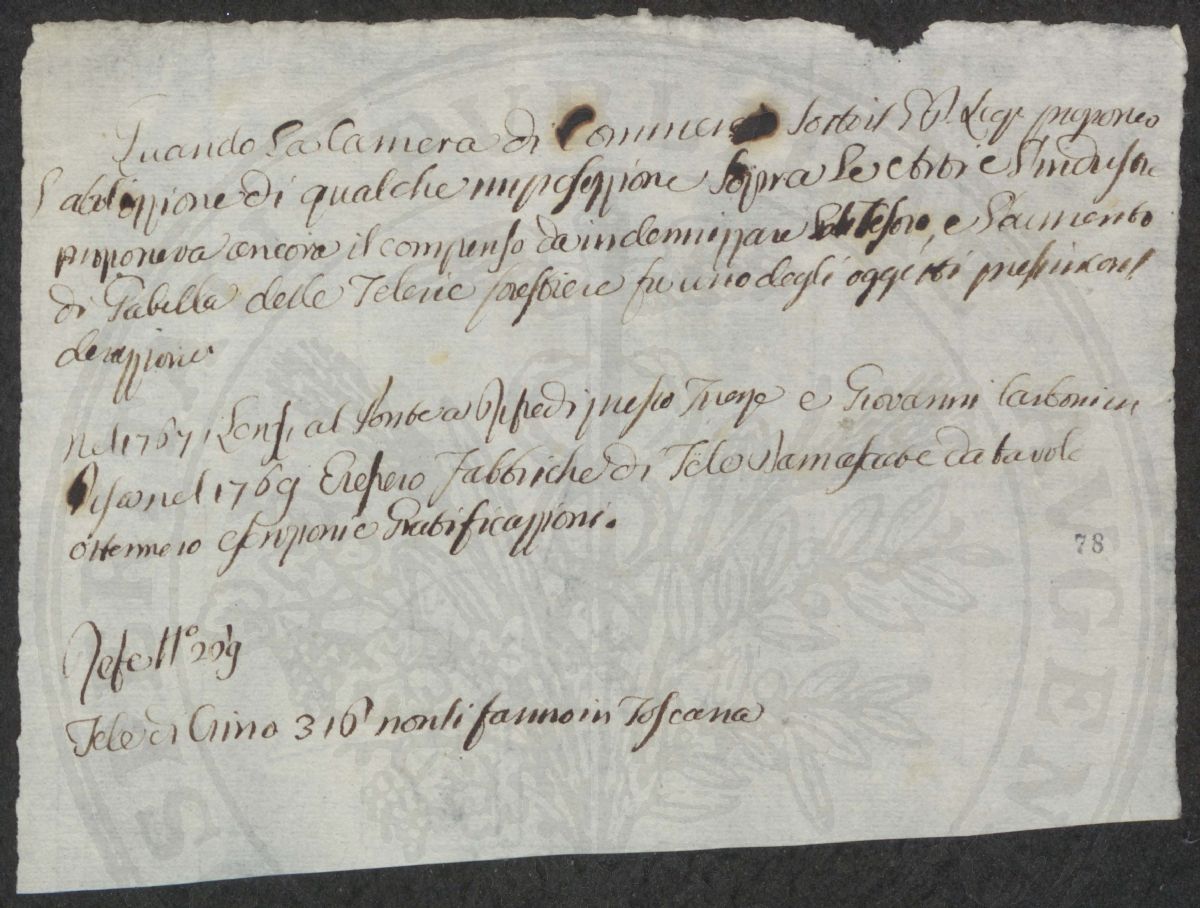 Quando La Camera di Commercio sotto il Leopoldo proponeo
l'abolizzione di qualche imposizzione sopra Le Arti e L'industrie
proponeva ancora il compenso da indennizzare il Tesoro, e L'aumento
di Gabella delle Telerie forestiere fu uno degli oggetti presi in consi
derazzione
Nel 1767 i Lensi al Ponte a Rifredi presso Firenze e Giovanni Carboni in
Pisa nel 1769 Eressero Fabbriche di Tele Damascate da tavole
ottennero esenzioni e Gratificazzioni.
78
Refe N.º 229
Tele di Lino 316 non si fanno in Toscana